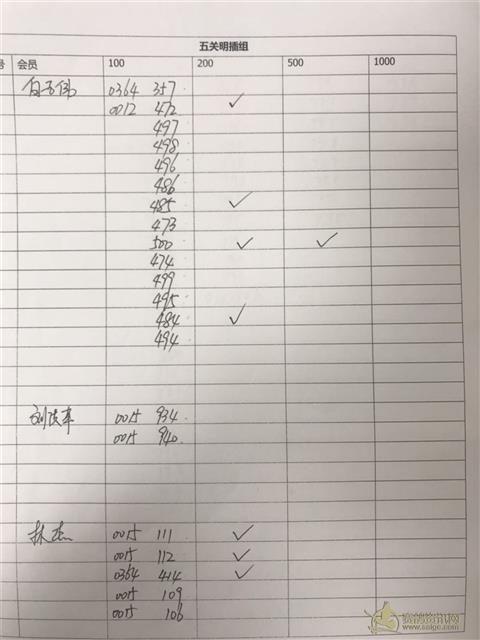 五关明插组
号 会员 100 200 500 1000
0364 357
0012 472 ✓
497
498
496
486
485 ✓
473
500 ✓ ✓
474
499
495
484 ✓
494
0015 934
0015 940
林杰 0015 111 ✓
0015 112 ✓
0364 414 ✓
0015 109
0015 106
www.saige.com